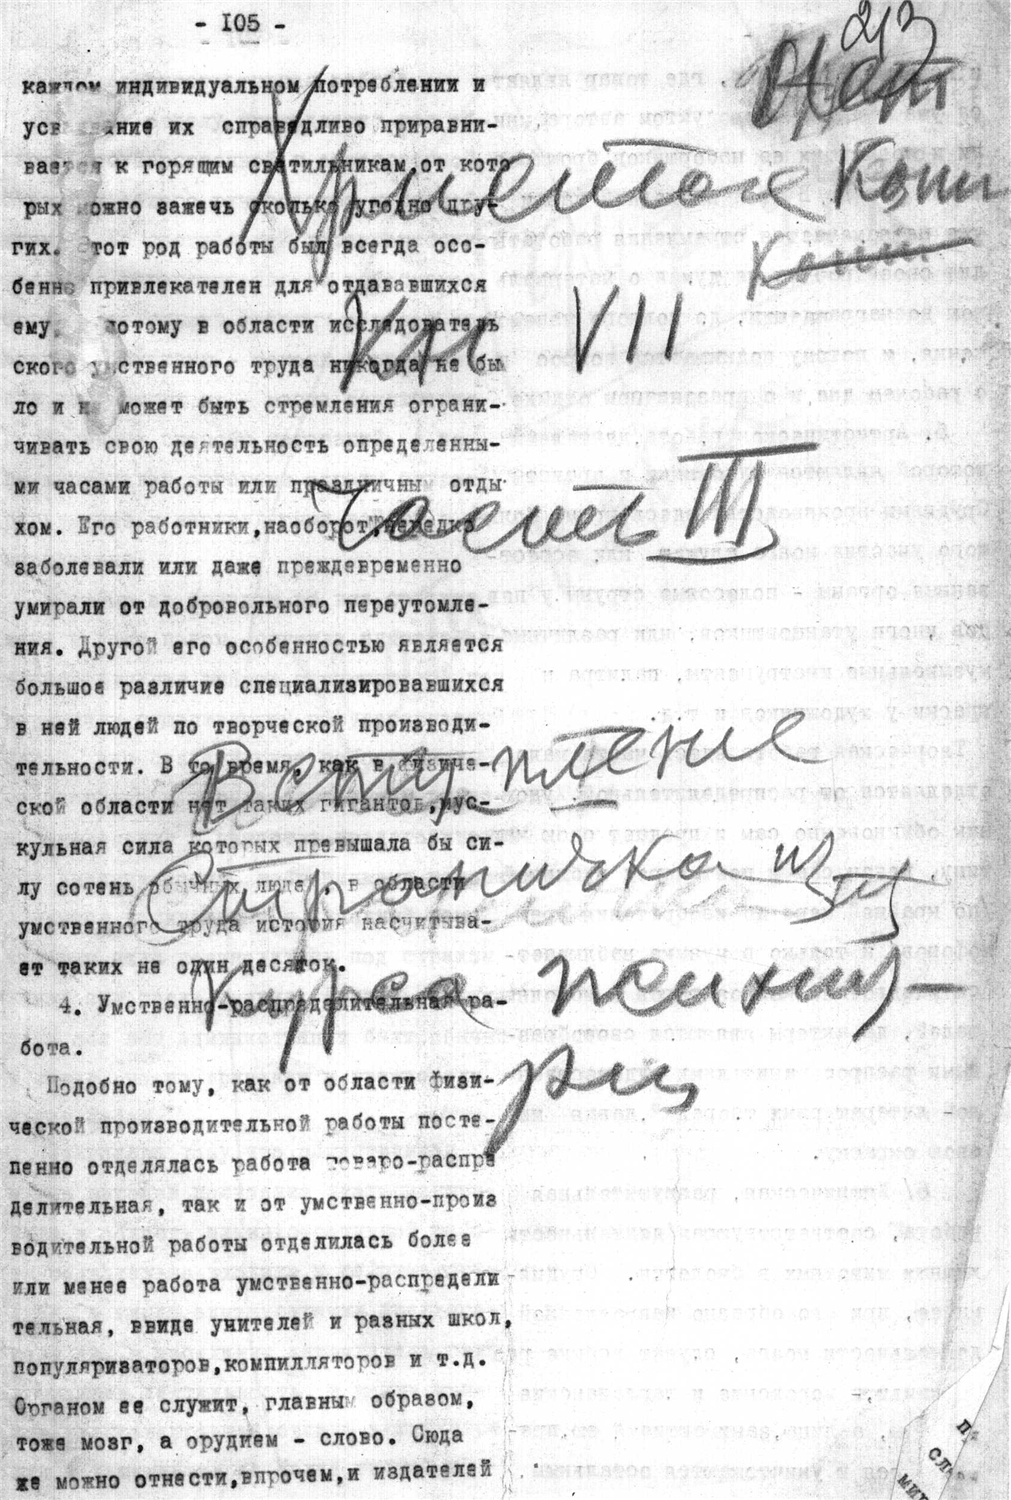 - I05 -
213
Нет
Христос Копи
Копии
Кн VII
часть III
Вступление
Страничка из
курса психиат-
рии
каждом индивидуальном потреблении и
усваивание их справедливо приравни-
вается к горящим светильникам, от кото
рых можно зажечь сколько угодно дру-
гих. Этот род работы был всегда осо-
бенно привлекателен для отдававшихся
ему, и потому в области исследователь
ского умственного труда никогда не бы
ло и не может быть стремления ограни-
чивать свою деятельность определенны-
ми часами работы или праздничным отды
хом. Его работники,наоборот,нередко
заболевали или даже преждевременно
умирали от добровольного переутомле-
ния. Другой его особенностью является
большое различие специализировавшихся
в ней людей по творческой производи-
тельности. В то время, как в физиче-
ской области нет таких гигантов,мус-
кульная сила которых превышала бы си-
лу сотень обычных людей, в области
умственного труда история насчитыва-
ет таких не один десяток.
4. Умственно-распределительная ра-
бота.
Подобно тому, как от области физи-
ческой производительной работы посте-
пенно отделялась работа товаро-распре
делительная, так и от умственно-произ
водительной работы отделилась более
или менее работа умственно-распредели
тельная, ввиде учителей и разных школ,
популяризаторов,компилляторов и т.д.
Органом ее служит, главным образом,
тоже мозг, а орудием - слово. Сюда
же можно отнести,впрочем,и издателей